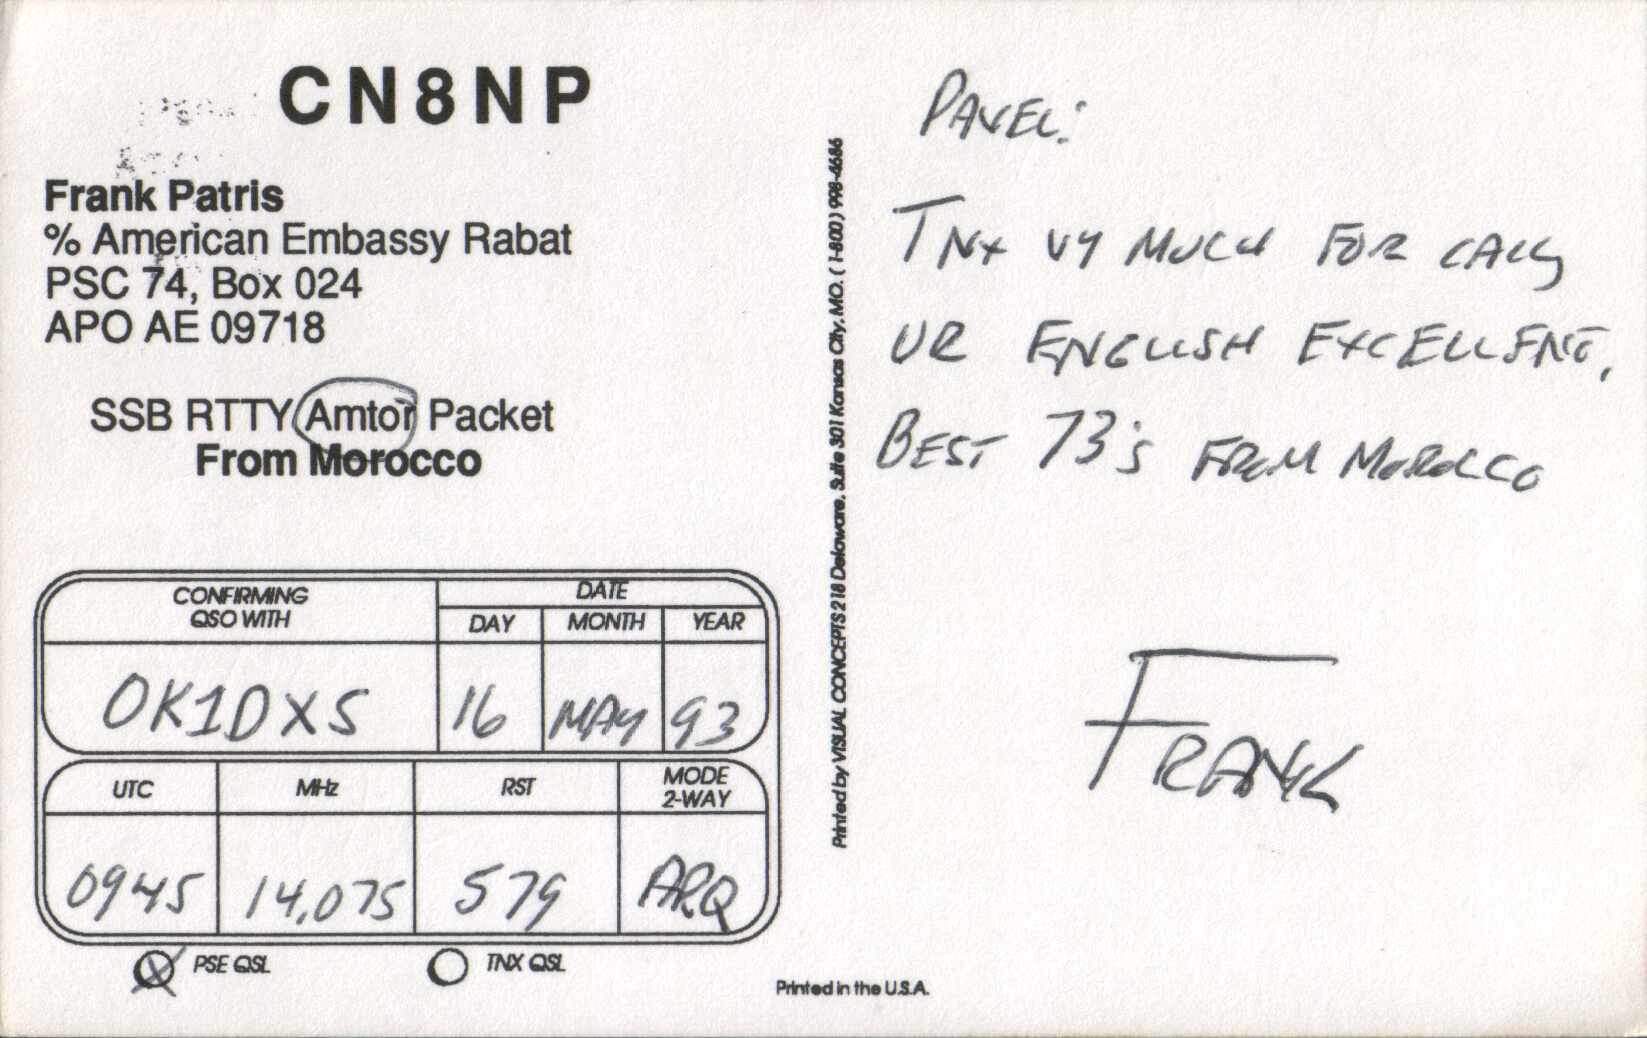 CN8NP
Frank Patris
% American Embassy Rabat
PSC 74, Box 024
APO AE 09718
SSB RTTY Amtor Packet
From Morocco
CONFIRMING
QSO WITH
DATE
DAY MONTH YEAR
OK1DXS 16 MAY 93
UTC MHz RST MODE
2-WAY
0945 14,075 579 ARQ
PSE QSL TNX QSL
Printed by VISUAL CONCEPTS 218 Delaware, Suite 301 Kansas City, MO. (1-800) 998-4686
Printed in the U.S.A.
PAVEL:
TNX VY MUCH FOR CALL,
UR ENGLISH EXCELLENT,
BEST 73's FROM MOROCCO
FRANK